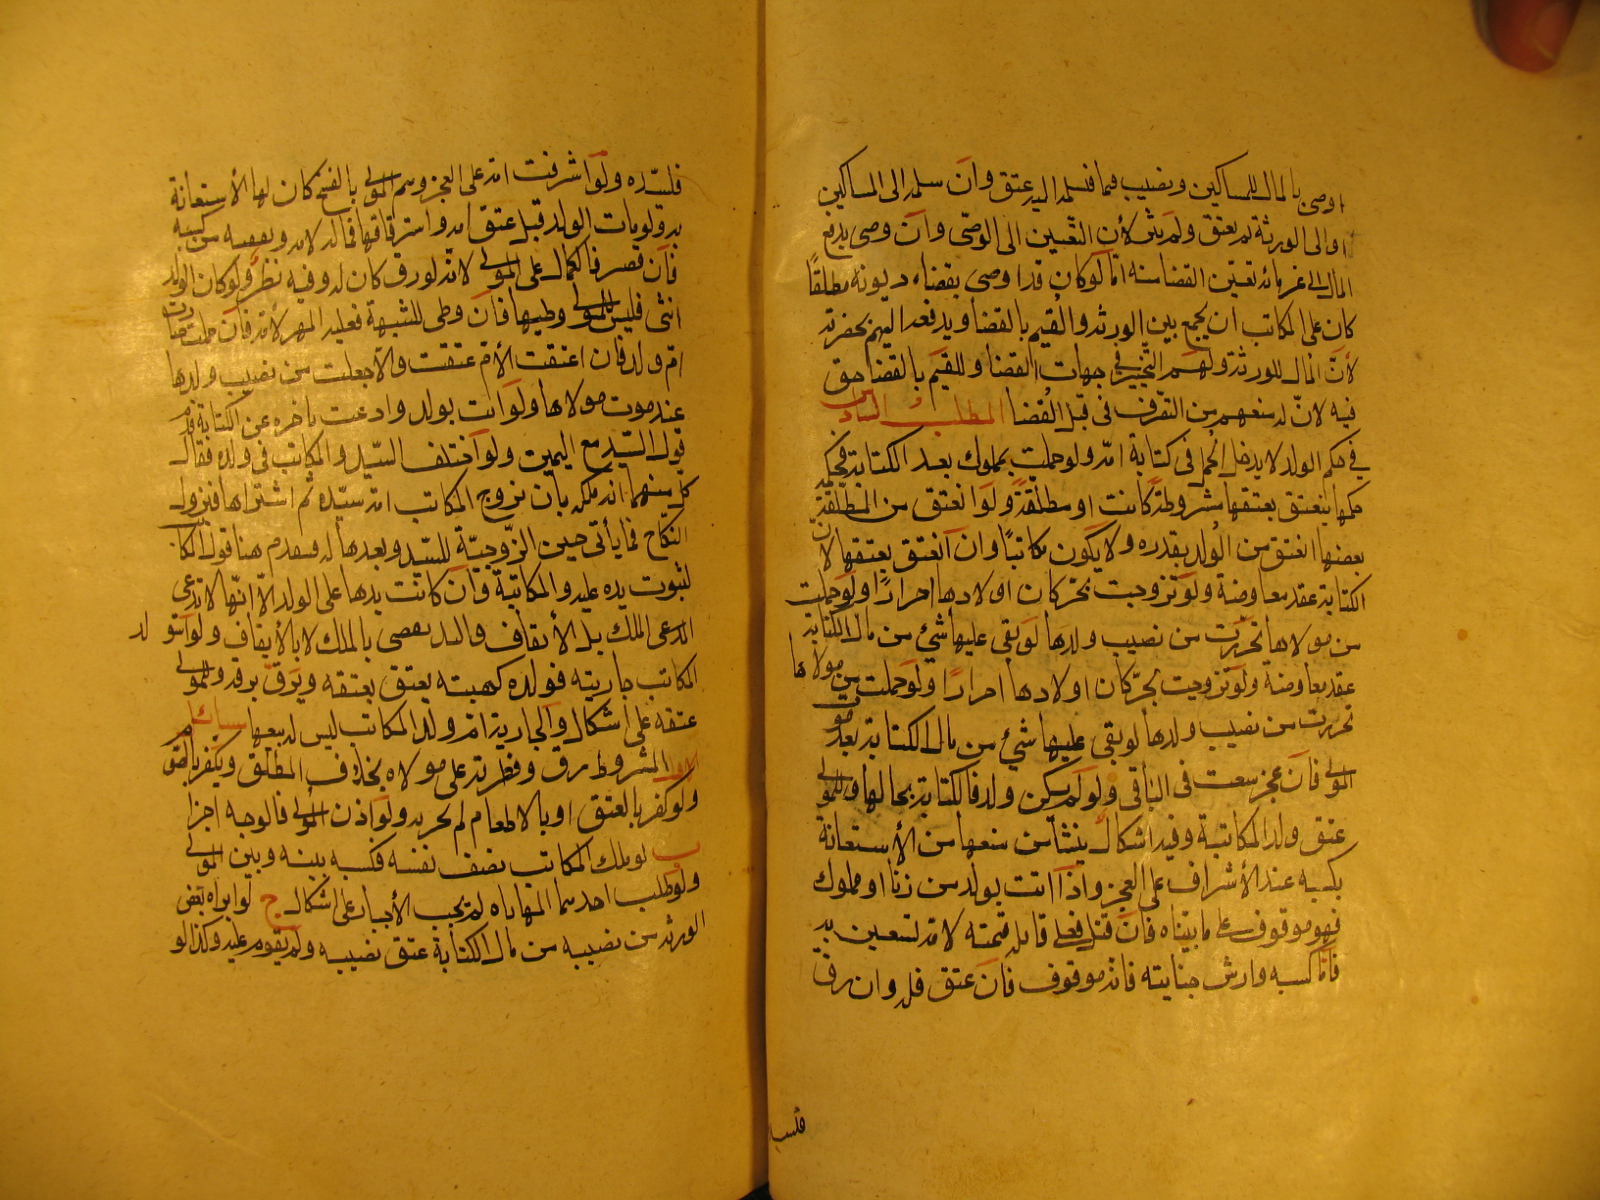 اوصى بالمال للمساكين ونصيب فما فسلمه اليه عتق وان سلمه الى المساكين
او الى الورثة لم يعتق ولم لأن التعيين الى الوصى وان وصى بدفع
المال الى غرمائه تعين القضا منه اما لو كان قد اوصى بقضاء ديونه مطلقاً
كان على المكاتب ان يجمع بين الورثة والقيم بالقضا ويدفعه اليهم بحضرته
لأن المال للورثة ولهم التخير في جهات القضا وللقيم بالقضا حق
فيه لان له منعهم من التصرف فى قبل القضا المطلب السادس
في حكم الولد لا يدخل الحمل فى كتابة امه ولو حملت بمملوك بعد الكتابة فحكمه
حكمها ينعتق بعتقها مشروطة كانت او مطلقة ولو انعتق من المطلقة
بعضها انعتق من الولد بقدره ولا يكون مكاتبًا وان انعتق بعتقها لان
الكتابة عقد معاوضة ولو تزوجت بحر كان اولادها احرارًا ولو حملت
من مولاها تحررت من نصيب ولدها لو بقى عليها شئ من مال الكتابة
عقد معاوضة ولو تزوجت بحر كان اولادها احرارًا ولو حملت من مولاها
تحررت من نصيب ولدها لو بقى عليها شئ من مال الكتابة بعد موت
المولى فان عجز سعت فى الباقى ولو لم يكن ولد فالكتابة بحالها وللمولى
عتق ولد المكاتبة وفيه اشكال ينشأ من منعها من الأستعانة
بكسبه عند الأشراف على العجز واذا اتت بولد من زنا او مملوك
فهو موقوف على ما بيناه فان قتل فعلى قاتله قيمته لامه تستعين به
فاما كسبه وارش جنايته فانه موقوف فان عتق فله وان رق
فلسيده
فلسيده ولو اشرفت امه على العجز وهم المولى بالفسخ كان لها الأستعانة
به ولو مات الولد قبل عتق امه واسترقاقها فماله لامه ونفقته من كسبه
فان قصر فالكمال على المولى لانه لو رق كان له وفيه نظر ولو كان الولد
انثى فليس للمولى وطيها فان وطى للشبهة فعليه المهر لأمه فان حملت صارت
ام ولد فان اعتقت الأم عتقت والا جعلت من نصيب ولدها
عند موت مولاها ولو اتت بولد وادعت تاخره عن الكتابة قدم
قول السيد مع اليمين ولو اختلف السيد والمكاتب فى ولده فقال
كل منهما انه ملكه بان تزوج المكاتب امة سيده ثم اشتراها فيزول
النكاح فما يأتى حين الزوجية للسيد وبعدها له فيقدم هنا قول المكاتب
لثبوت يده عليه والمكاتبة وان كانت يدها على الولد الا انها لا تدعى
الملك بل الأيقاف واليد تقضى بالملك لا بالأيقاف ولو استولد
المكاتب جاريته فولده كهيئته يعتق بعتقه ويرق برقه وللمولى
عتقه على اشكال والجارية ام ولد المكاتب ليس له بيعها مسائل
الاول المشروط رق وفطرته على مولاه بخلاف المطلق ويكفر بالصوم
ولو كفر بالعتق او بالاطعام لم يجزيه ولو اذن المولى فالوجه اجزا
ب لو ملك المكاتب نصف نفسه فكسبه بينه وبين المولى
ولو طلب احدهما المهاياه لم يجب الأجبار على اشكال ج لو ابراه بعض
الورثة من نصيبه من مال الكتابة عتق نصيبه ولم يقوم عليه وكذا لو